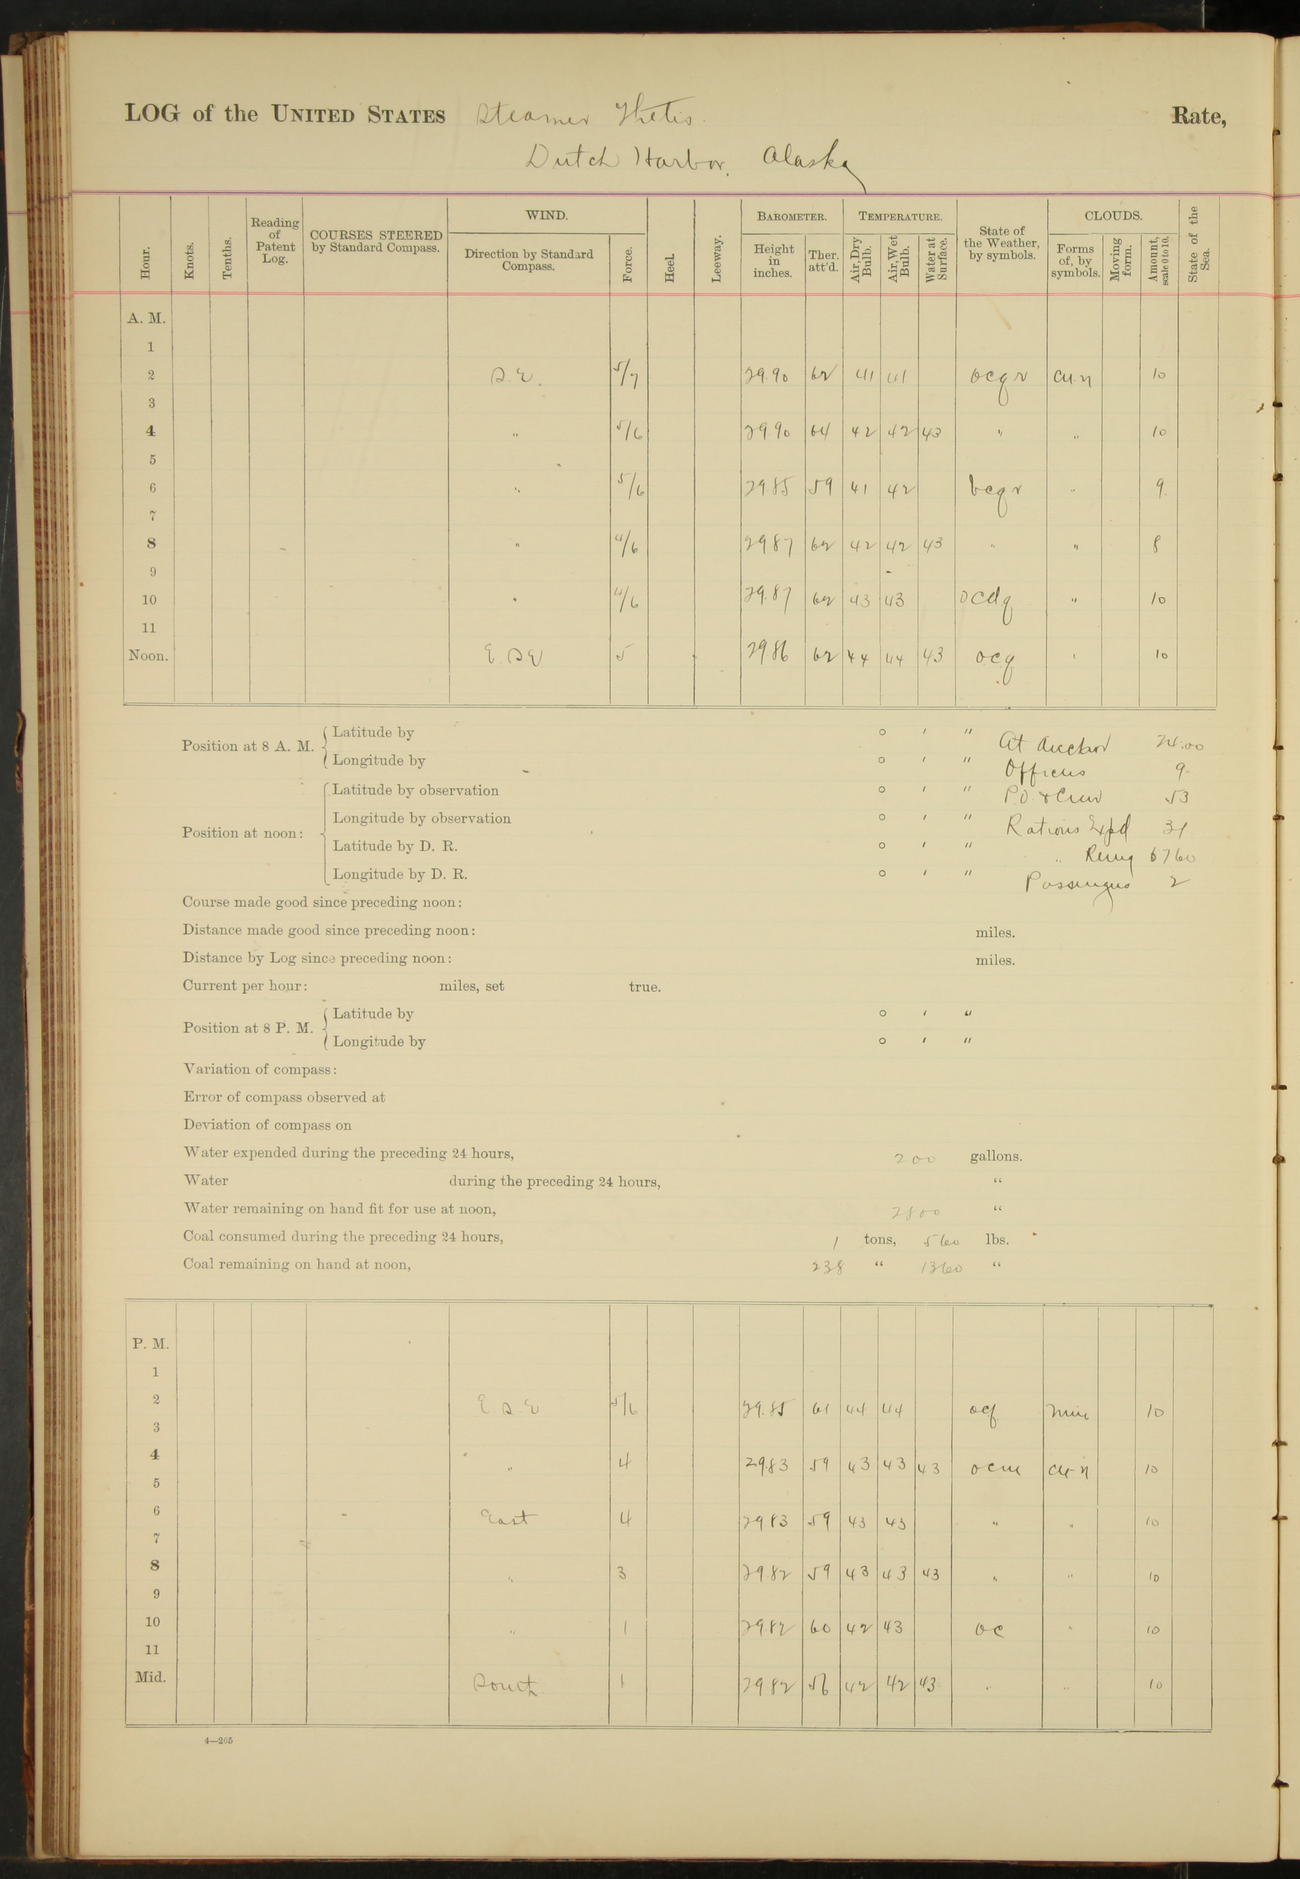 LOG of the UNITED STATES Steamer Thetis. Rate,
Dutch Harbor, Alaska
Hour. Knots. Tenths. Reading of Patent Log. COURSES STEERED by Standard Compass. WIND. Direction by Standard Compass. Force. Heel. Leeway. BAROMETER. Height in inches. Ther. att'd. TEMPERATURE. Air, Dry Bulb. Air, Wet Bulb. Water at Surface. State of the Weather, by symbols. CLOUDS. Forms of, by symbols. Moving form. Amount, scale 0 to 10. State of the Sea.
A. M.
1
2 S.E. 5/7 29.90 62 41 41 ocqr cu.n 10
3
4 " 5/6 29 90 64 42 42 43 " " 10
5
6 " 5/6 29 85 59 41 42 bcqr " 9
7
8 " 4/6 29 87 62 42 42 43 " " 8
9
10 " 4/6 29.87 62 43 43 ocdq " 10
11
Noon. E.SE 5 29 86 62 44 44 43 ocq " 10
Position at 8 A. M. Latitude by ° ′ ″ At anchor 24.00
Longitude by ° ′ ″ Officers 9
Position at noon: Latitude by observation ° ′ ″ P.O. & Crew 53
Longitude by observation ° ′ ″ Rations Expd 31
Latitude by D. R. ° ′ ″ " Remg 6760
Longitude by D. R. ° ′ ″ Passengers 2
Course made good since preceding noon:
Distance made good since preceding noon: miles.
Distance by Log since preceding noon: miles.
Current per hour: miles, set true.
Position at 8 P. M. Latitude by ° ′ ″
Longitude by ° ′ ″
Variation of compass:
Error of compass observed at
Deviation of compass on
Water expended during the preceding 24 hours, 200 gallons.
Water during the preceding 24 hours, "
Water remaining on hand fit for use at noon, 2800 "
Coal consumed during the preceding 24 hours, 1 tons, 560 lbs.
Coal remaining on hand at noon, 238 " 1360 "
P. M.
1
2 E.S.E 5/6 29.85 61 44 44 10
3
4 " 4 29.83 59 43 43 43 ocm cu-n 10
5
6 East 4 29 83 59 43 43 " " 10
7
8 " 3 29 82 59 43 43 43 " " 10
9
10 " 1 29.82 60 42 43 oc " 10
11
Mid. South 1 29 82 56 42 42 43 " " 10
4—265